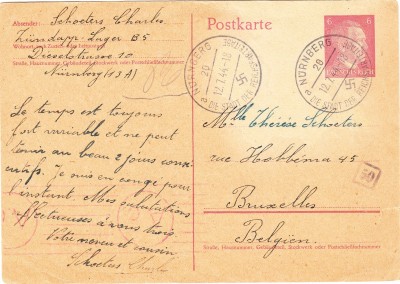 Absender: Schoeters Charles
Zündapp-Lager B5
Wohnort, auch Zustell- oder Leitpostamt
Dieselstrasse 10
Straße, Hausnummer, Gebäudeteil, Stockwerk oder Postschließfachnummer
Nürnberg (13A)
Postkarte
6 6
NÜRNBERG
20
12.1.44
a DIE STADT DER
NÜRNBERG
20
12.
a DIE STADT DER
Le temps est toujours
fort variable et ne peut
tenir au beau 2 jours consé-
cutifs. Je suis en congé pour
l'instant Mes salutations
affectueuses à vous trois
Votre neveu et cousin
Schoeters Charles
Mlle Thérèse Schoeters
rue Hobbéma 45
50
Bruxelles
Belgien.
Straße, Hausnummer, Gebäudeteil, Stockwerk oder Postschließfachnummer